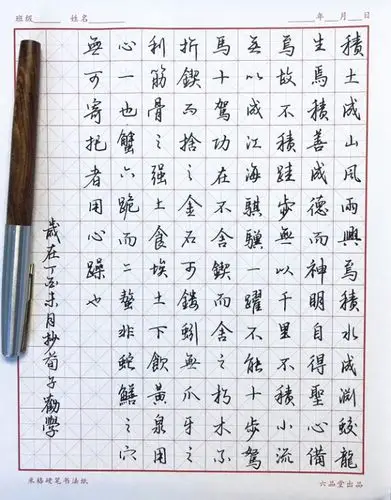 班级 姓名 年 月 日
積土成山風雨興焉積水成淵蛟龍
生焉積善成德而神明自得聖心備
焉故不積跬步無以千里不積小流
無以成江海騏驥一躍不能十步駑
馬十駕功在不舍鍥而舍之朽木不
折鍥而捨之金石可鏤蚓無爪牙之
利筋骨之强土食埃土下飲黃泉用
心一也蟹六跪而二螯非蛇鱔之穴
無可寄托者用心躁也
歲在丁酉未月抄荀子勸學
米格硬笔书法纸
六品堂出品